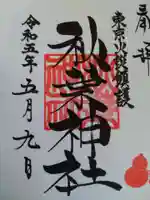 奉拝
東京火鎮護
秋葉神社
令和五年五月九日